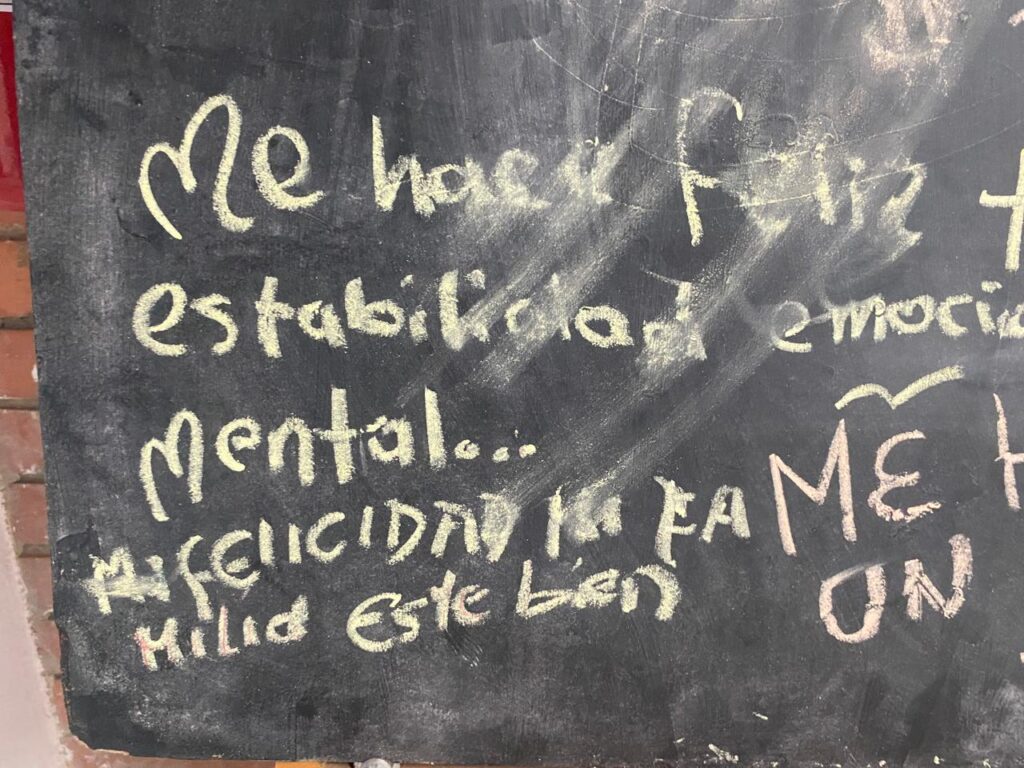 Me hace feliz
estabilidad emocio
Mental...
MI FELICIDAD
MILIA Este bien
ME
UN